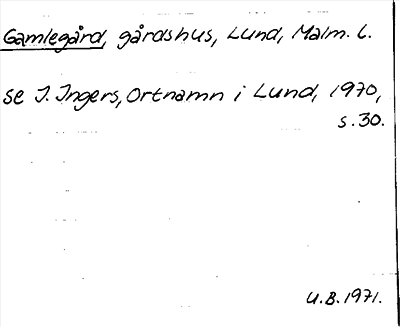 Gamlegård, gårdshus, Lund, Malm. l.
se J. Ingers, Ortnamn i Lund, 1970,
s.30.
U.B.1971.